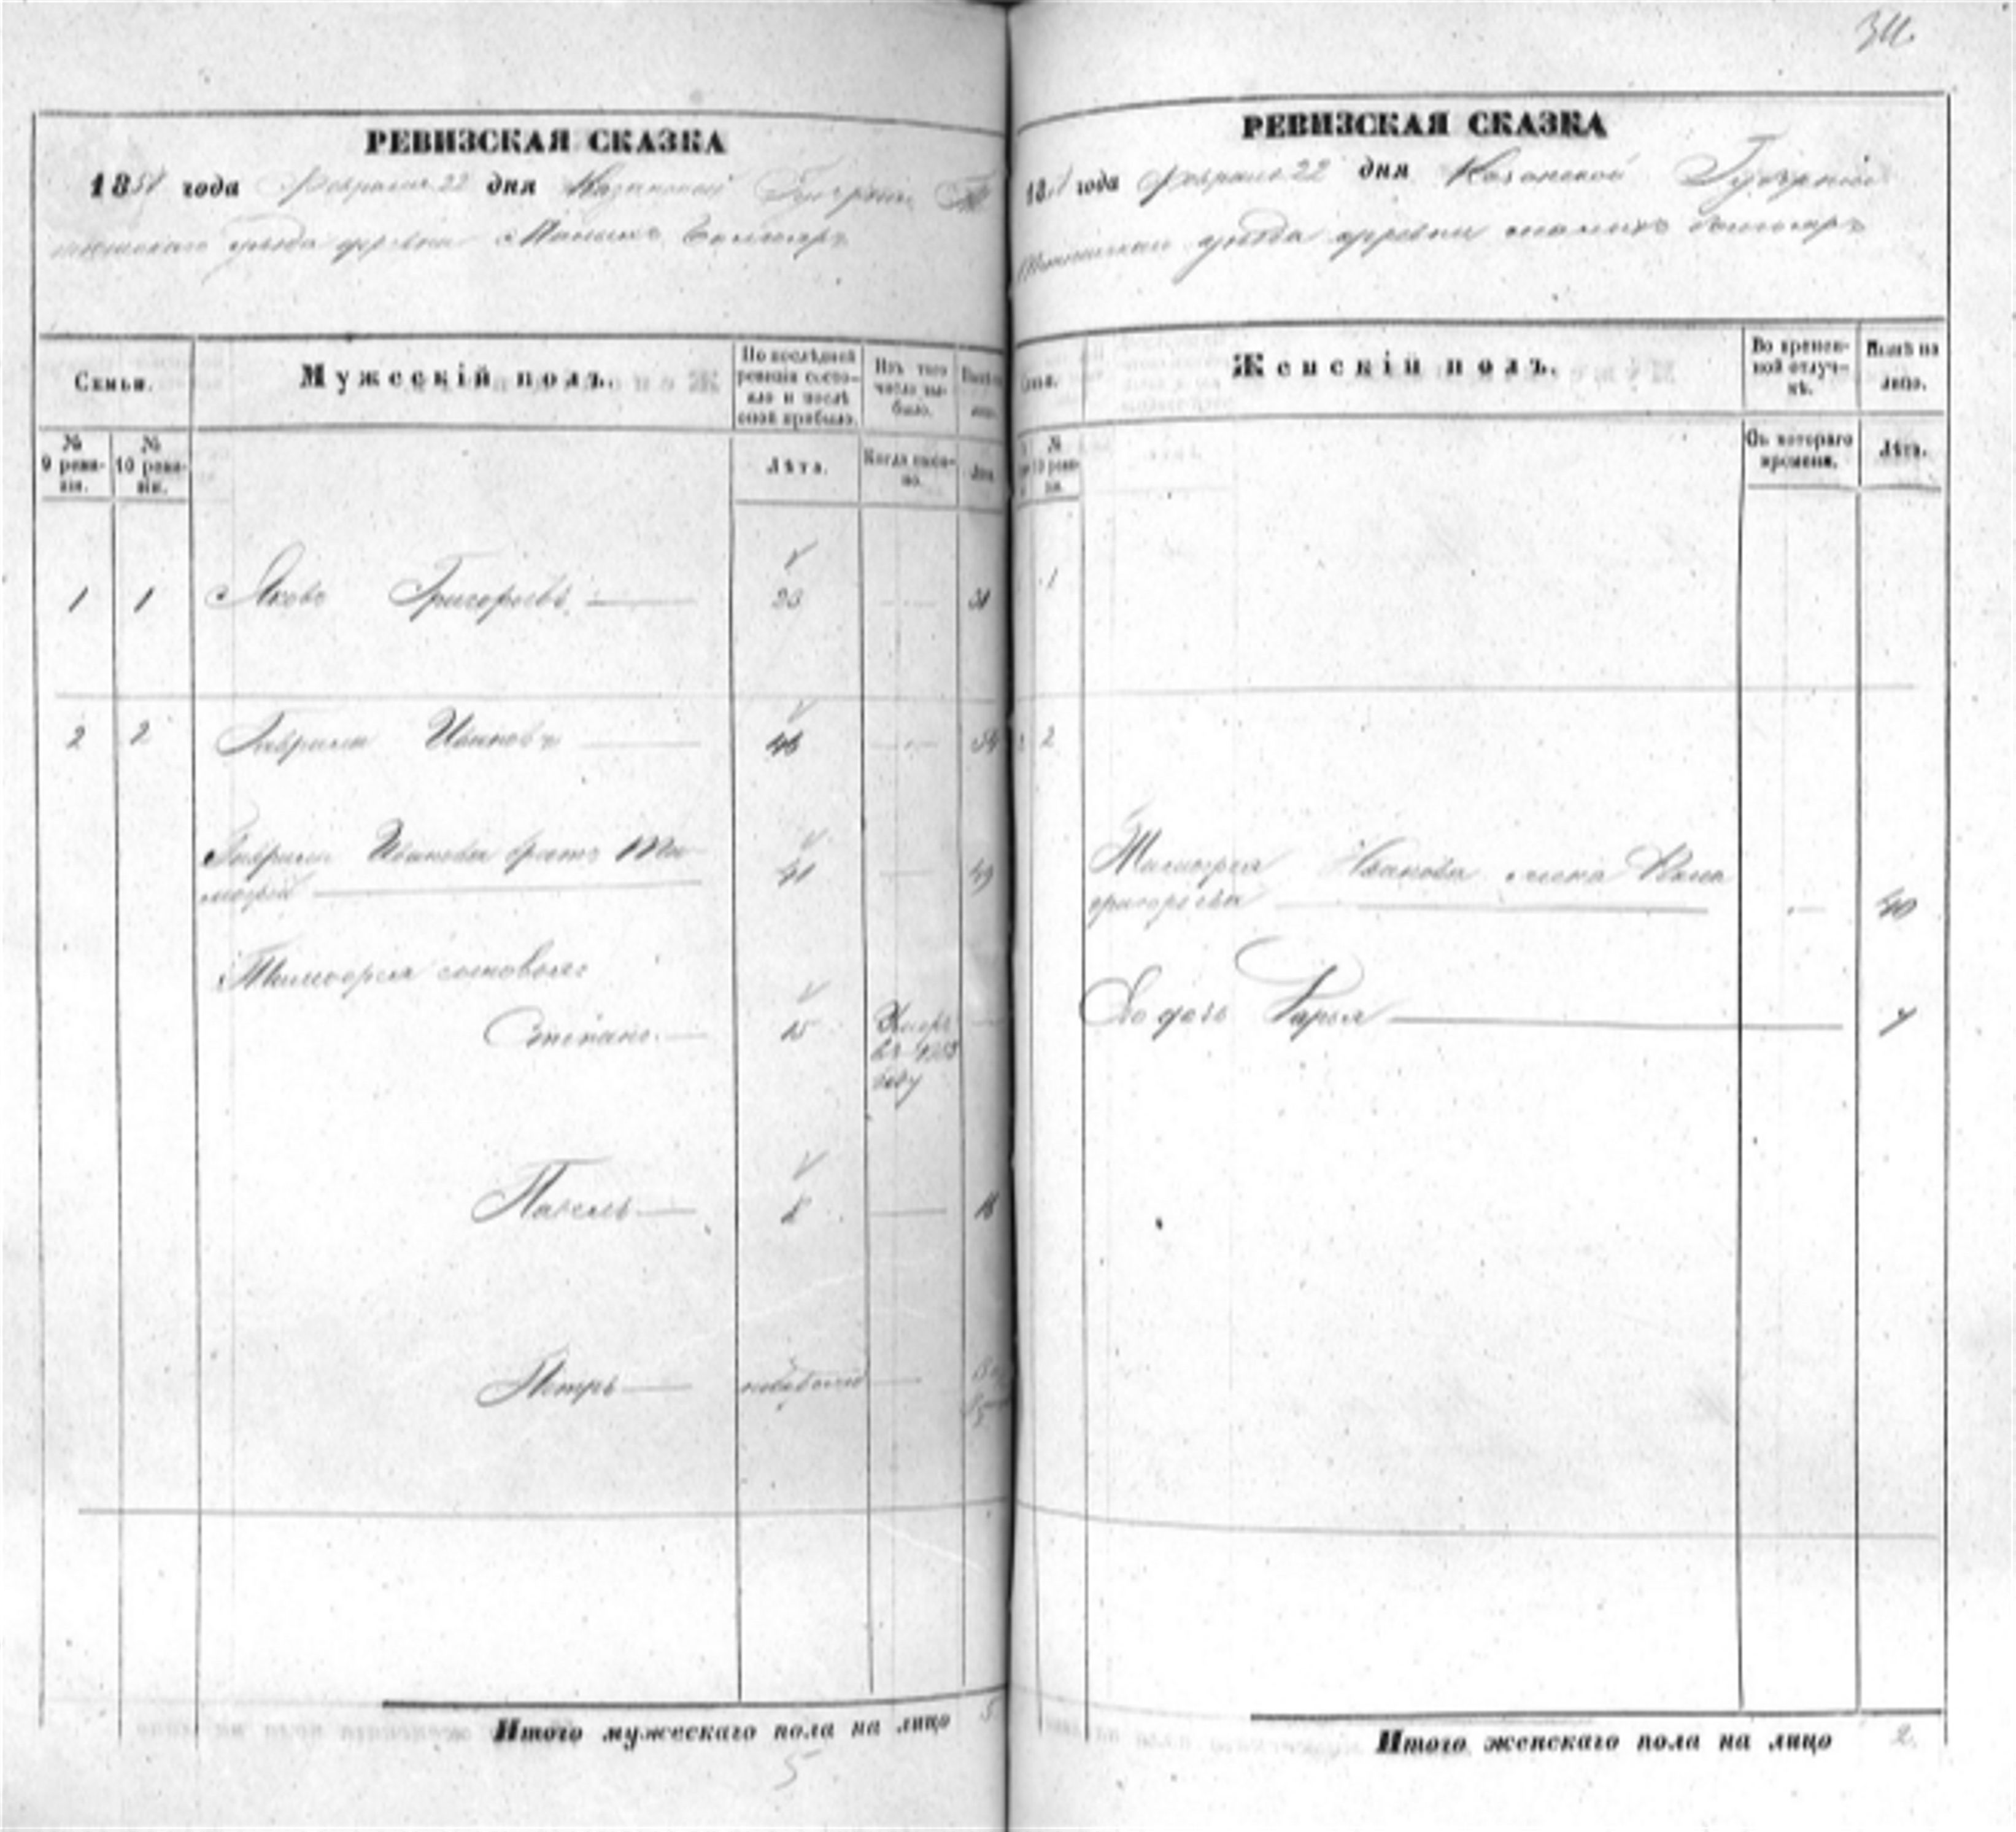 РЕВИЗСКАЯ СКАЗКА
1858 года Февраля 22 дня Казанской Губернии
уѣзда деревни
Семьи.
Мужескій полъ.
По послѣдней ревизіи состояло и послѣ оной прибыло.
Изъ того числа выбыло.
№ 9 ревизіи.
№ 10 ревизіи.
Лѣта.
Когда именно.
Лѣта
1 1 Яковъ Григорьевъ 23 31
2 2 Гаврила Ивановъ 46 54
Гаврилы Иванова братъ Тимофей 41 49
Тимофея сыновья
Степанъ 15 Умеръ въ 1853 году
Павелъ 8 16
Петръ
Итого мужескаго пола на лицо 5
5
34.
РЕВИЗСКАЯ СКАЗКА
года Февраля 22 дня Казанской Губерніи
уѣзда деревни
Женскій полъ.
Во временной отлучкѣ.
Нынѣ на лицо.
Съ котораго времени.
Лѣта.
1
2
Тимофея Иванова жена
Григорьева 40
Его дочь Дарья 7
Итого женскаго пола на лицо 2.